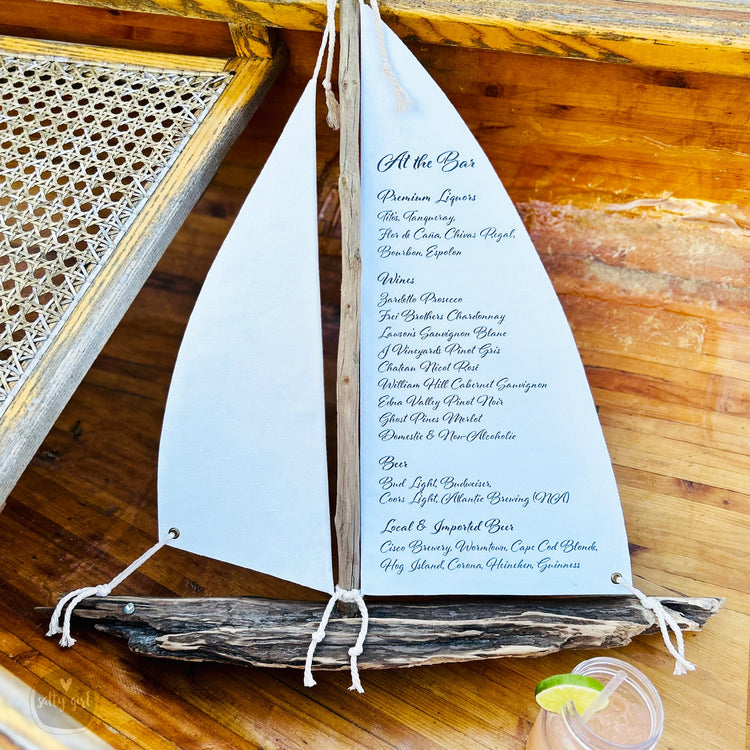 At the Bar
Premium Liquors
Titos, Tanqueray,
Flor de Caña, Chivas Regal,
Bourbon, Espolon
Wines
Zardetto Prosecco
Frei Brothers Chardonnay
Lawson's Sauvignon Blanc
J Vineyards Pinot Gris
Chateau Nicot Rosé
William Hill Cabernet Sauvignon
Edna Valley Pinot Noir
Ghost Pines Merlot
Domestic & Non-Alcoholic
Beer
Bud Light, Budweiser,
Coors Light, Atlantic Brewing (NA)
Local & Imported Beer
Cisco Brewery, Wormtown, Cape Cod Blonde,
Hog Island, Corona, Heineken, Guinness
salty girl